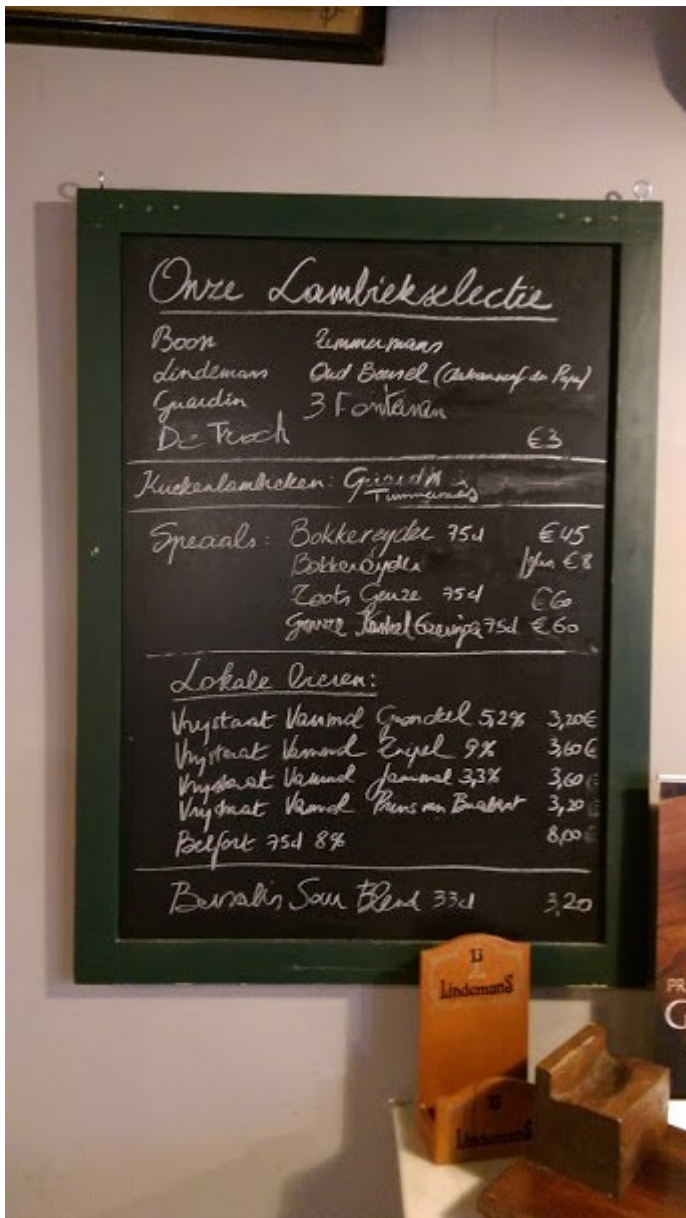 Onze Lambiekselectie
Boon Timmermans
Lindemans Oud Beersel (Chateauneuf du Pape)
Girardin 3 Fonteinen
De Troch €3
Kriekenlambieken: Girardin &
Timmermans
Specials: Bokkereyder 75cl €45
Bokkereyder /glas €8
Zoots Geuze 75cl €60
Geuze 75cl €60
Lokale bieren:
Vrijstaat Vanmol Grondkel 5,2% 3,20€
Vrijstaat Vanmol Tripel 9% 3,60€
Vrijstaat Vanmol 3,3% 3,60€
Vrijstaat Vanmol Prins van Brabant 3,20
Belfort 75cl 8% 8,00€
Bersalis Sour Blend 33cl 3,20
LindemanS
LindemanS
PR
G